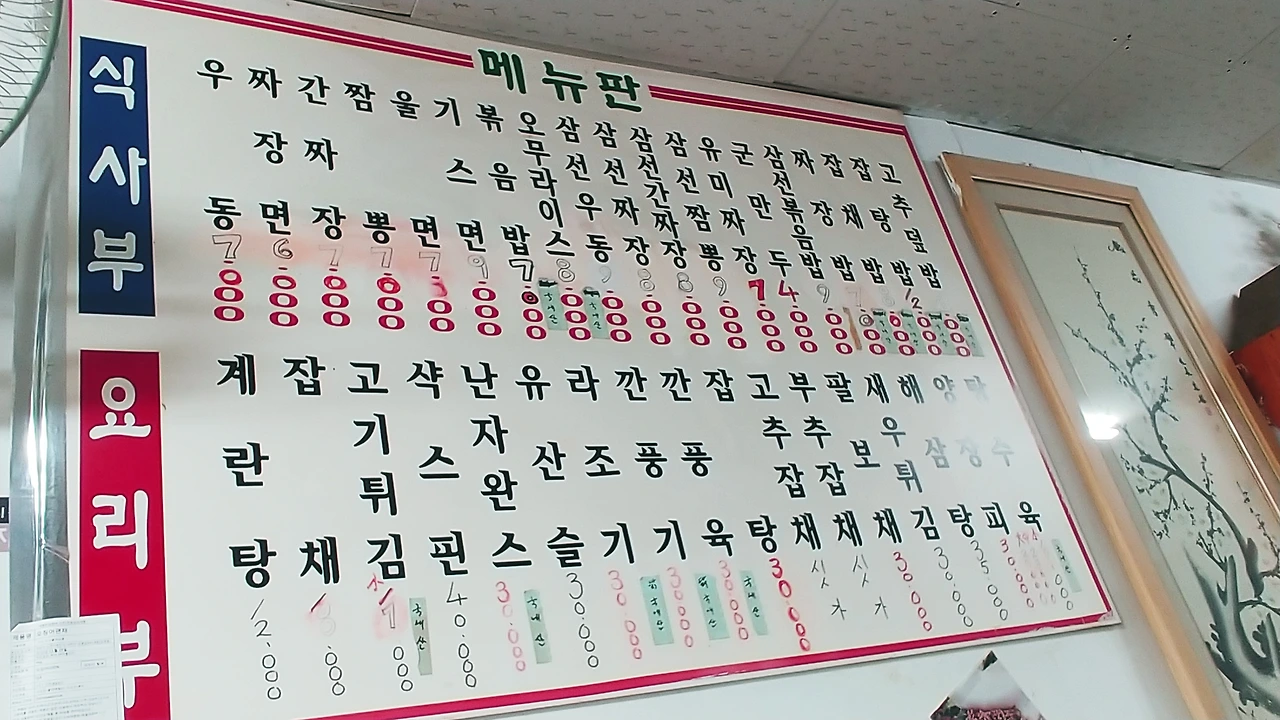 메뉴판
식사부
우동
7.000
짜장면
6.000
간짜장
7.000
짬뽕
7.000
울면
7.000
기스면
9.000
볶음밥
7.000
오무라이스
8.000
삼선우동
9.000
삼선짜장
8.000
삼선간짜장
8.000
삼선짬뽕
9.000
유미짜장
7.000
군만두
4.000
삼선볶음밥
9.000
짜장밥
잡채밥
잡탕밥
고추덮밥
요리부
계란탕
12.000
잡채
고기튀김
국내산
샥스핀
40.000
난자완스
30.000
국내산
유산슬
30.000
라조기
30.000
국내산
깐풍기
30.000
국내산
깐풍육
30.000
국내산
잡탕
30.000
고추잡채
싯가
부추잡채
싯가
팔보채
30.000
새우튀김
30.000
해삼탕
35.000
양장피
30.000
탕수육